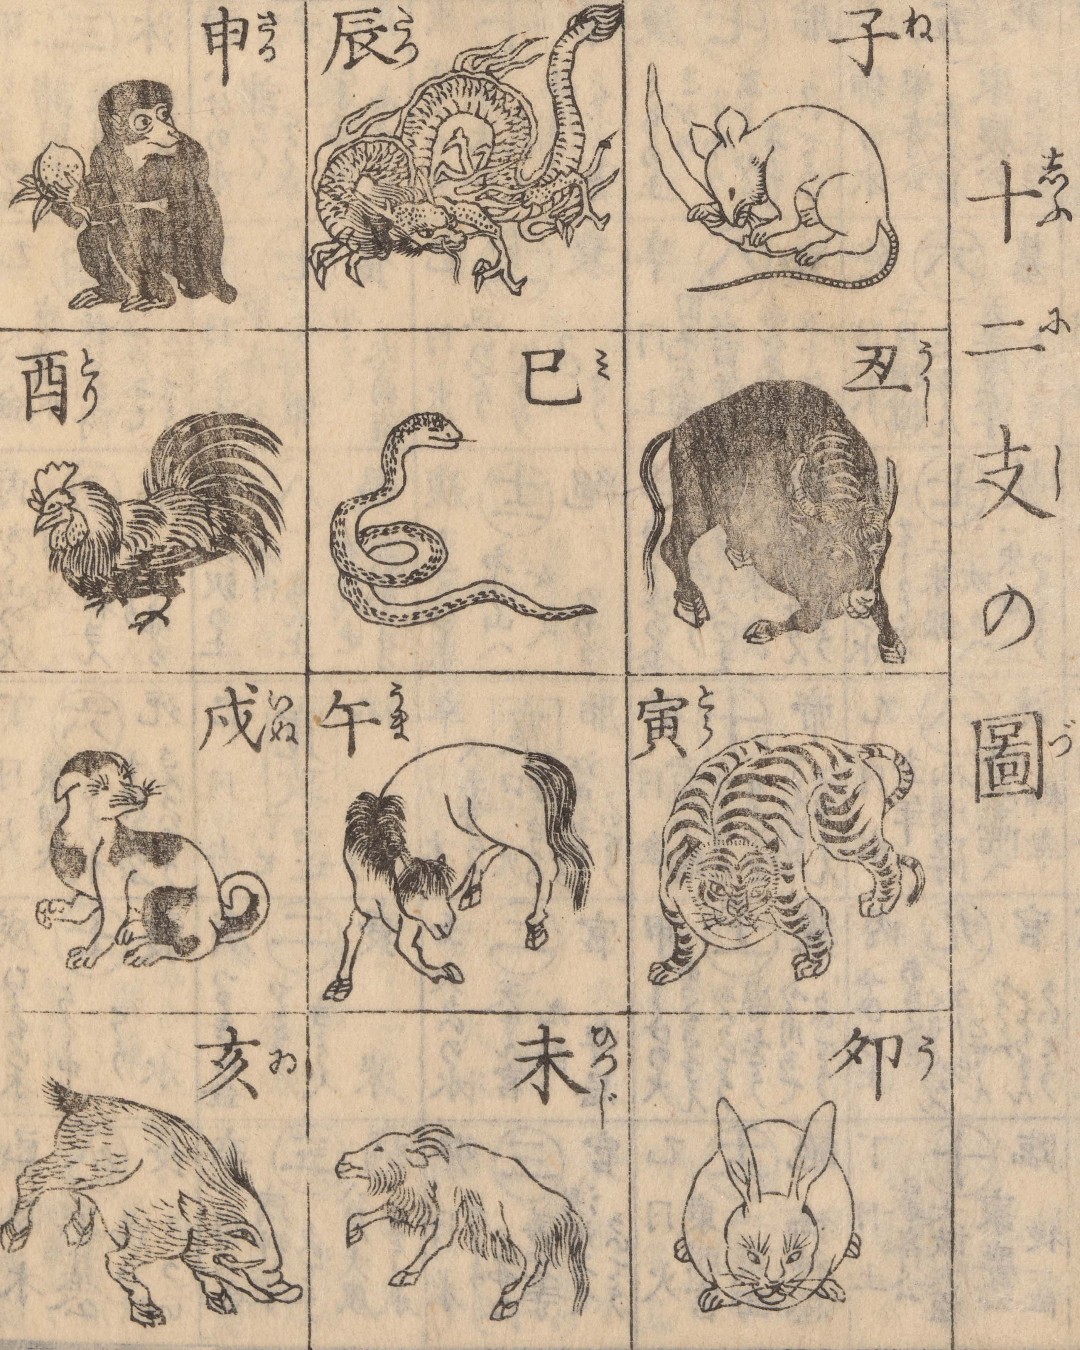 十二支の圖
じふにしのづ
子
ね
丑
うし
寅
とら
卯
う
辰
たつ
巳
ミ
午
うま
未
ひつじ
申
さる
酉
とり
戌
いぬ
亥
ゐ